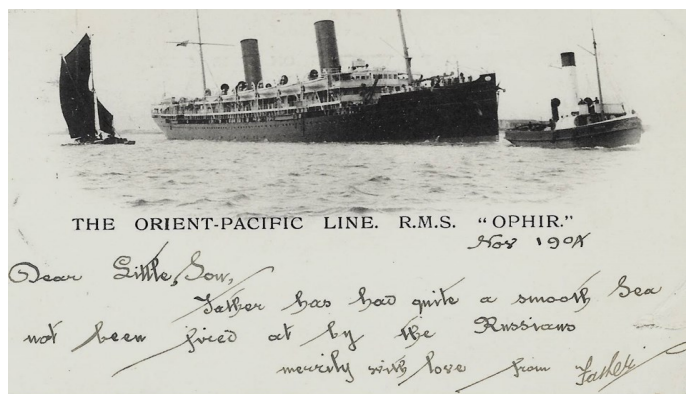 THE ORIENT-PACIFIC LINE. R.M.S. "OPHIR."
Nov 1904
Dear Little Son,
Father has had quite a smooth Sea
not been fired at by the Russians
merrily with love from Father